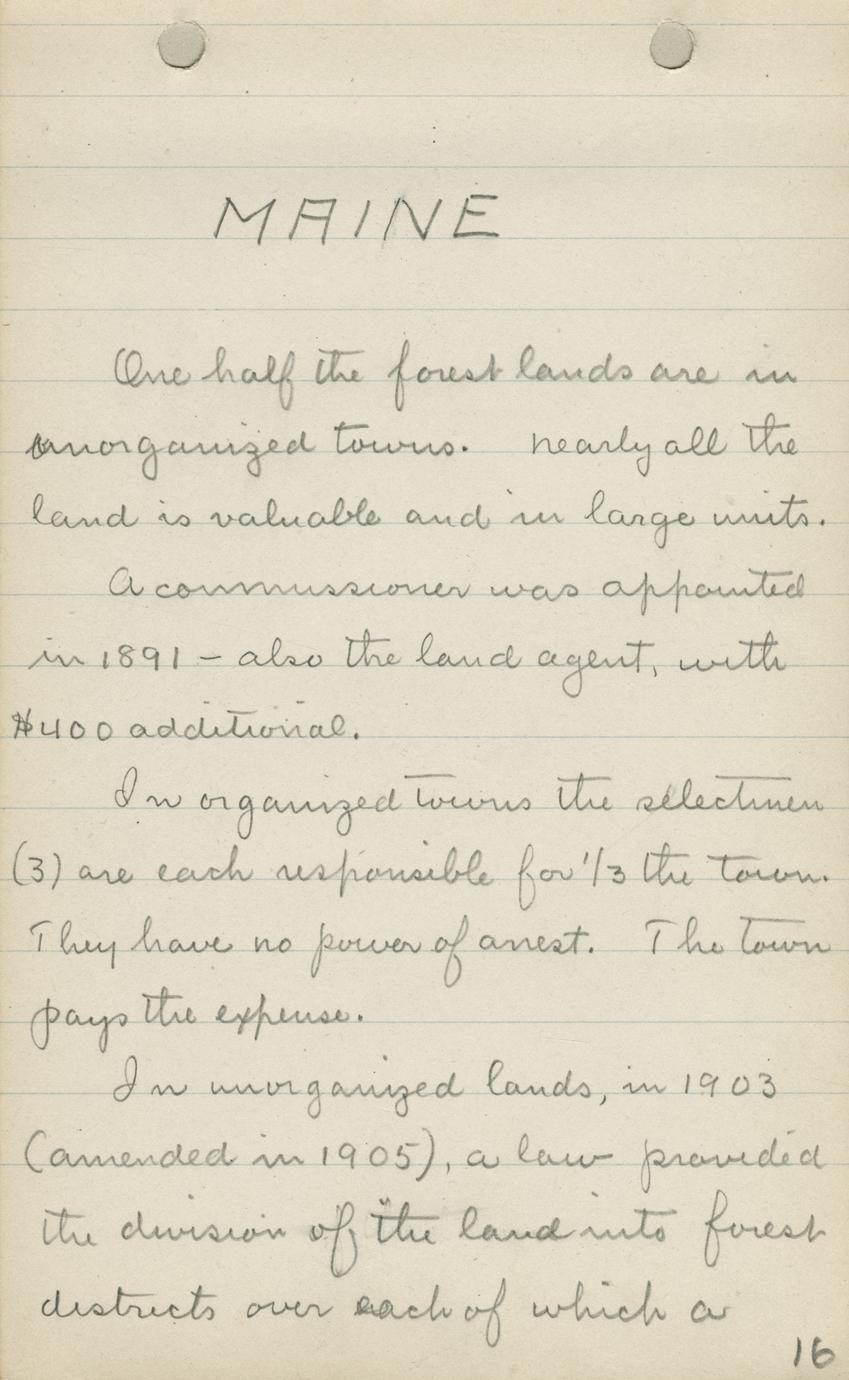 MAINE
One half the forest lands are in
unorganized towns. nearly all the
land is valuable and in large units.
A commissioner was appointed
in 1891 – also the land agent, with
$400 additional.
In organized towns the selectmen
(3) are each responsible for 1/3 the town.
They have no power of arrest. The town
pays the expense.
In unorganized lands, in 1903
(amended in 1905), a law provided
the division of the land into forest
districts over each of which a
16